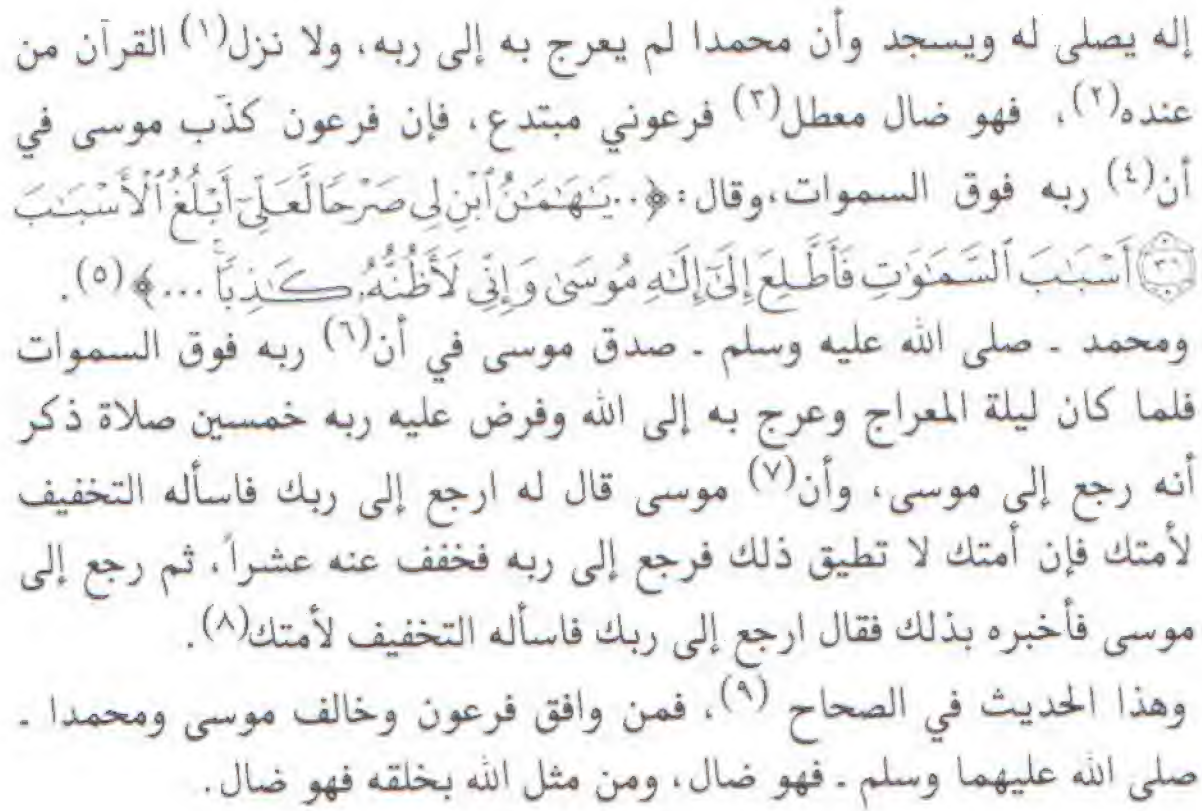 إله يصلى له ويسجد وأن محمدا لم يعرج به إلى ربه، ولا نزل(١) القرآن من
عنده(٢)، فهو ضال معطل(٣) فرعوني مبتدع، فإن فرعون كذّب موسى في
أن(٤) ربه فوق السموات،وقال: ﴿..يَـٰهَـٰمَـٰنُ ٱبْنِ لِى صَرْحًا لَّعَلِّىٓ أَبْلُغُ ٱلْأَسْبَـٰبَ
٣٦ أَسْبَـٰبَ ٱلسَّمَـٰوَٰتِ فَأَطَّلِعَ إِلَىٰٓ إِلَـٰهِ مُوسَىٰ وَإِنِّى لَأَظُنُّهُۥ كَـٰذِبًا ...﴾(٥).
ومحمد ـ صلى الله عليه وسلم ـ صدق موسى في أن(٦) ربه فوق السموات
فلما كان ليلة المعراج وعرج به إلى الله وفرض عليه ربه خمسين صلاة ذكر
أنه رجع إلى موسى، وأن(٧) موسى قال له ارجع إلى ربك فاسأله التخفيف
لأمتك فإن أمتك لا تطيق ذلك فرجع إلى ربه فخفف عنه عشراً، ثم رجع إلى
موسى فأخبره بذلك فقال ارجع إلى ربك فاسأله التخفيف لأمتك(٨).
وهذا الحديث في الصحاح (٩)، فمن وافق فرعون وخالف موسى ومحمدا ـ
صلى الله عليهما وسلم ـ فهو ضال، ومن مثل الله بخلقه فهو ضال.